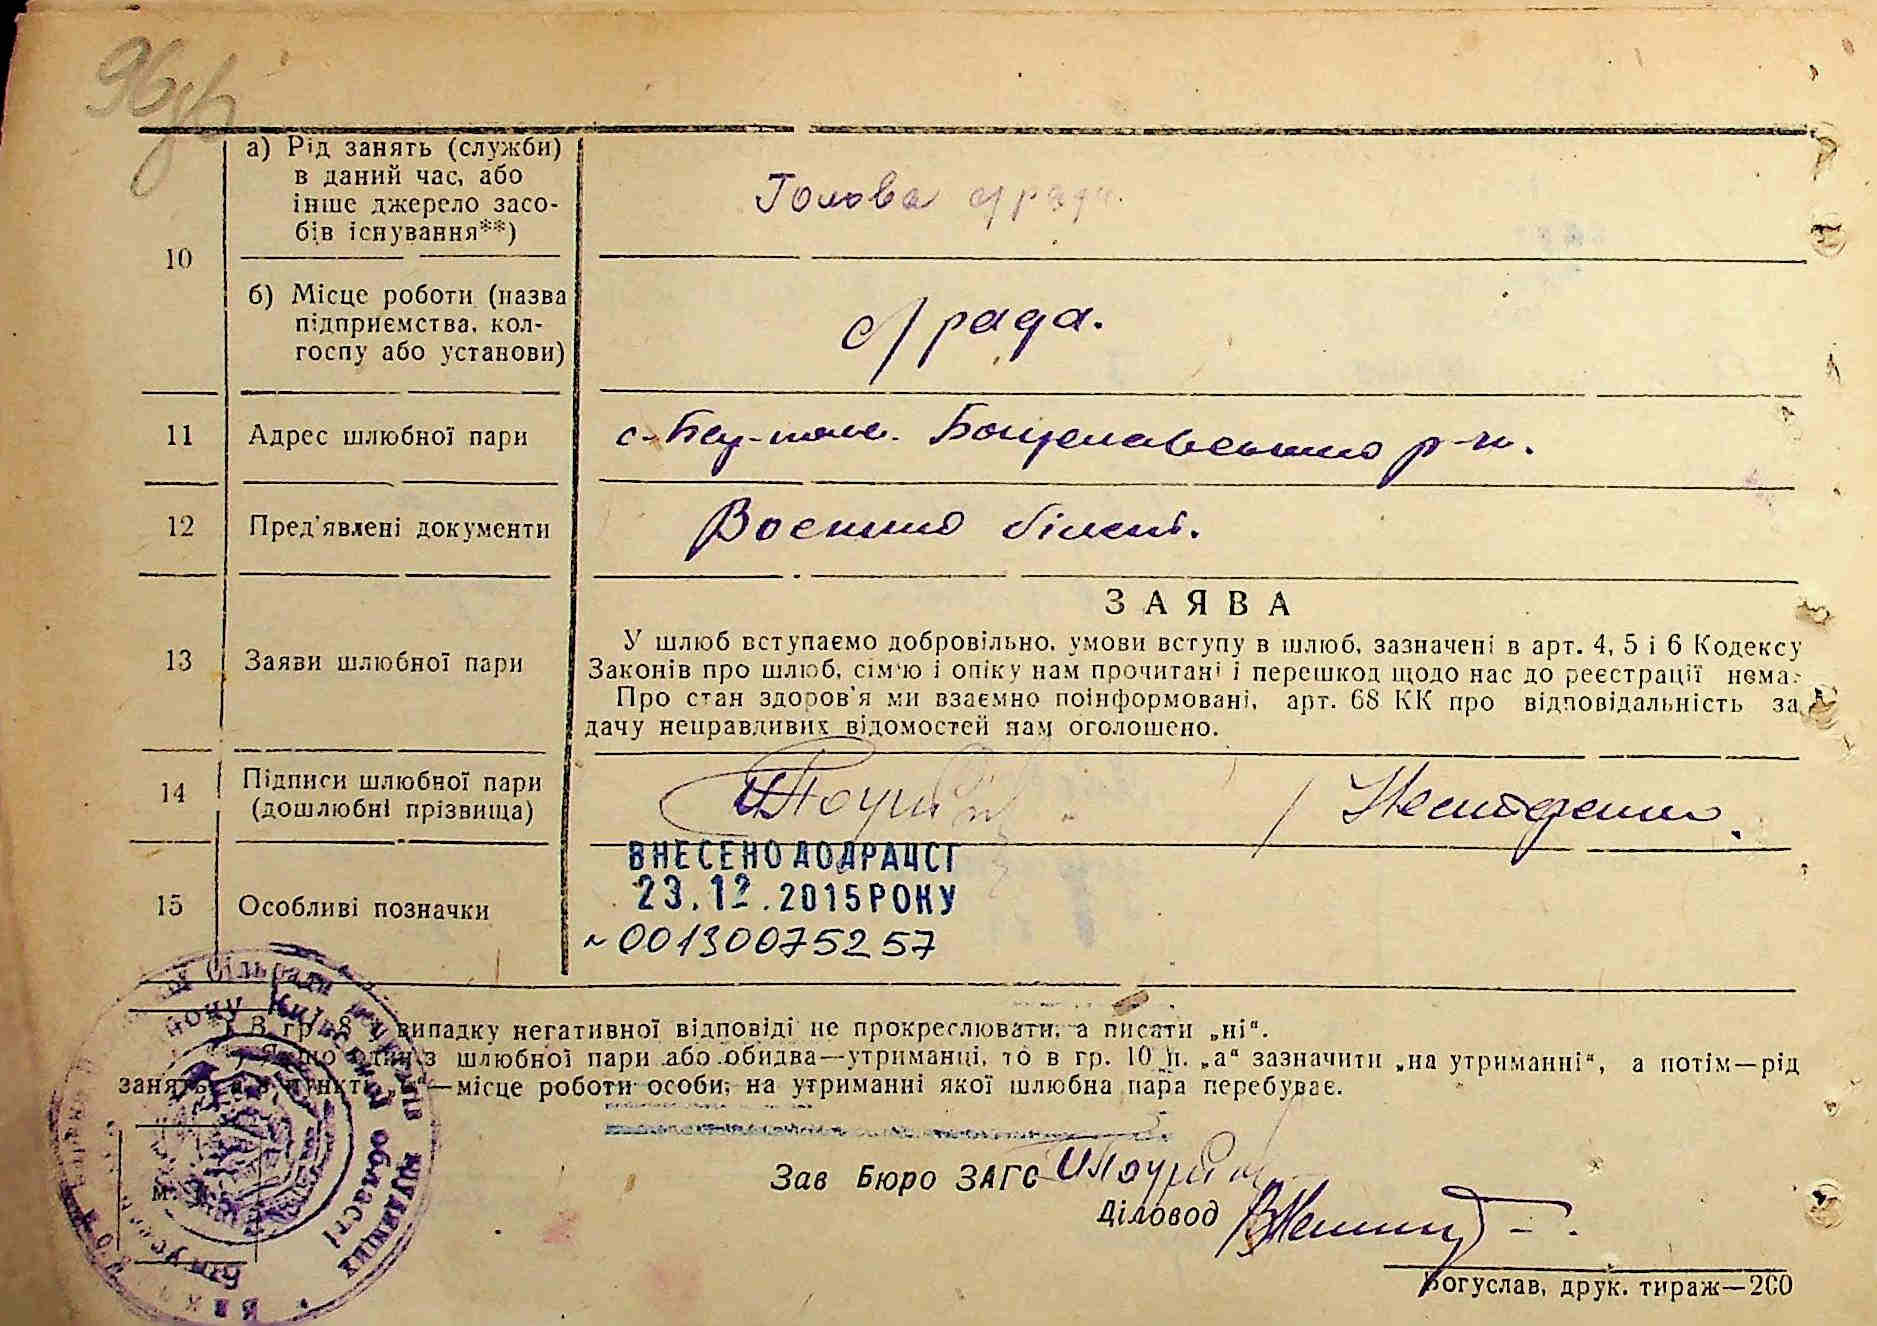 10
а) Рід занять (служби)
в даний час, або
інше джерело засо-
бів існування**)
Голова с/ради.
б) Місце роботи (назва
підприємства, кол-
госпу або установи)
с/рада.
11
Адрес шлюбної пари
Богуславського р-н.
12
Пред'явлені документи
Воєнний білет.
13
Заяви шлюбної пари
ЗАЯВА
У шлюб вступаємо добровільно, умови вступу в шлюб, зазначені в арт. 4, 5 і 6 Кодексу
Законів про шлюб, сім'ю і опіку нам прочитані і перешкод щодо нас до реєстрації нема.
Про стан здоров'я ми взаємно поінформовані, арт. 68 КК про відповідальність за
дачу неправдивих відомостей нам оголошено.
14
Підписи шлюбної пари
(дошлюбні прізвища)
15
Особливі позначки
ВНЕСЕНО ДО ДРАЦСГ
23.12.2015 РОКУ
00130075257
В гр. 8 у випадку негативної відповіді не прокреслювати, а писати „ні".
Якщо один з шлюбної пари або обидва—утриманці, то в гр. 10 п. „а" зазначити „на утриманні", а потім—рід
занять, а в пункті —місце роботи особи, на утриманні якої шлюбна пара перебуває.
Зав Бюро ЗАГС
Діловод
м.
Богуслав, друк. тираж—200